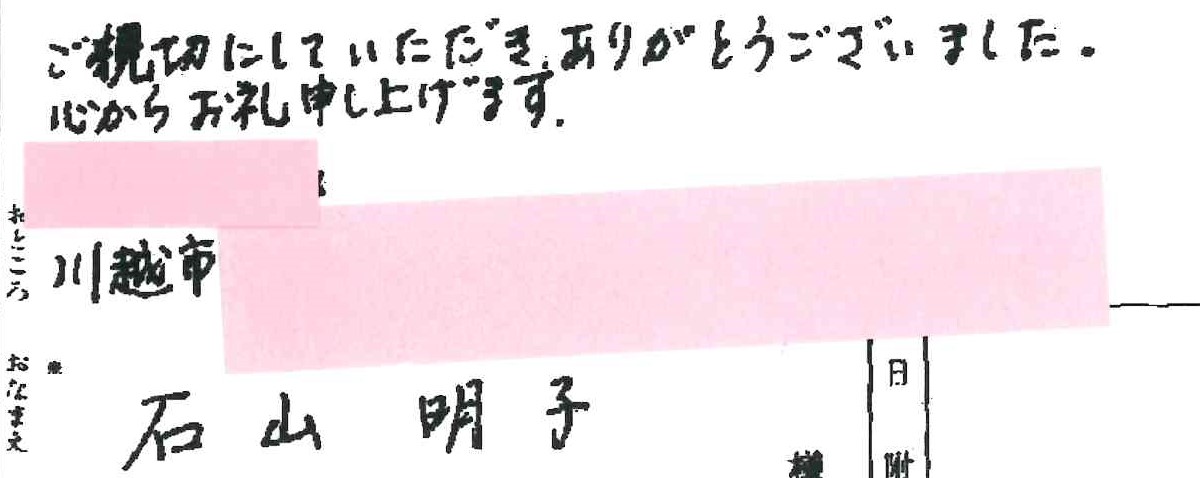 ご親切にしていただき、ありがとうございました。
心からお礼申し上げます.
おところ
川越市
おなまえ
※
石山 明子
様
日附